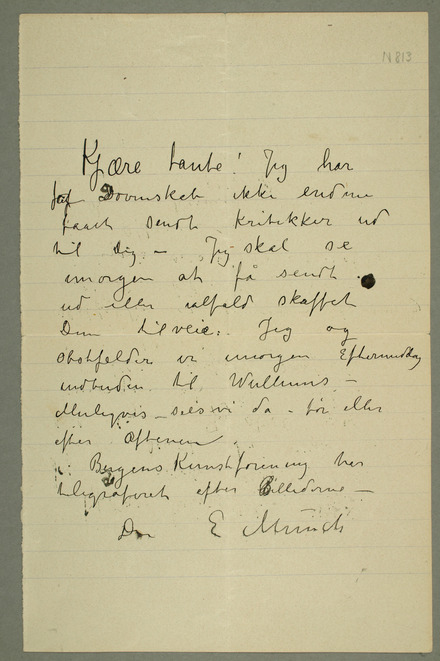 N 813
Kjære tante! Jeg har
af Dovenskab ikke endnu
faaet sendt Kritikker ud
til Dig – Jeg skal se
imorgen at få sendt
ud eller ialfald skaffet
Dem tilveie. Jeg og
Obstfelder er imorgen Eftermiddag
indbuden til Wullums –
Muligvis sees vi da – før eller
efter Aftenen.
Bergens Kunstforening har
telegraferet efter Billederne –
Din E Munch